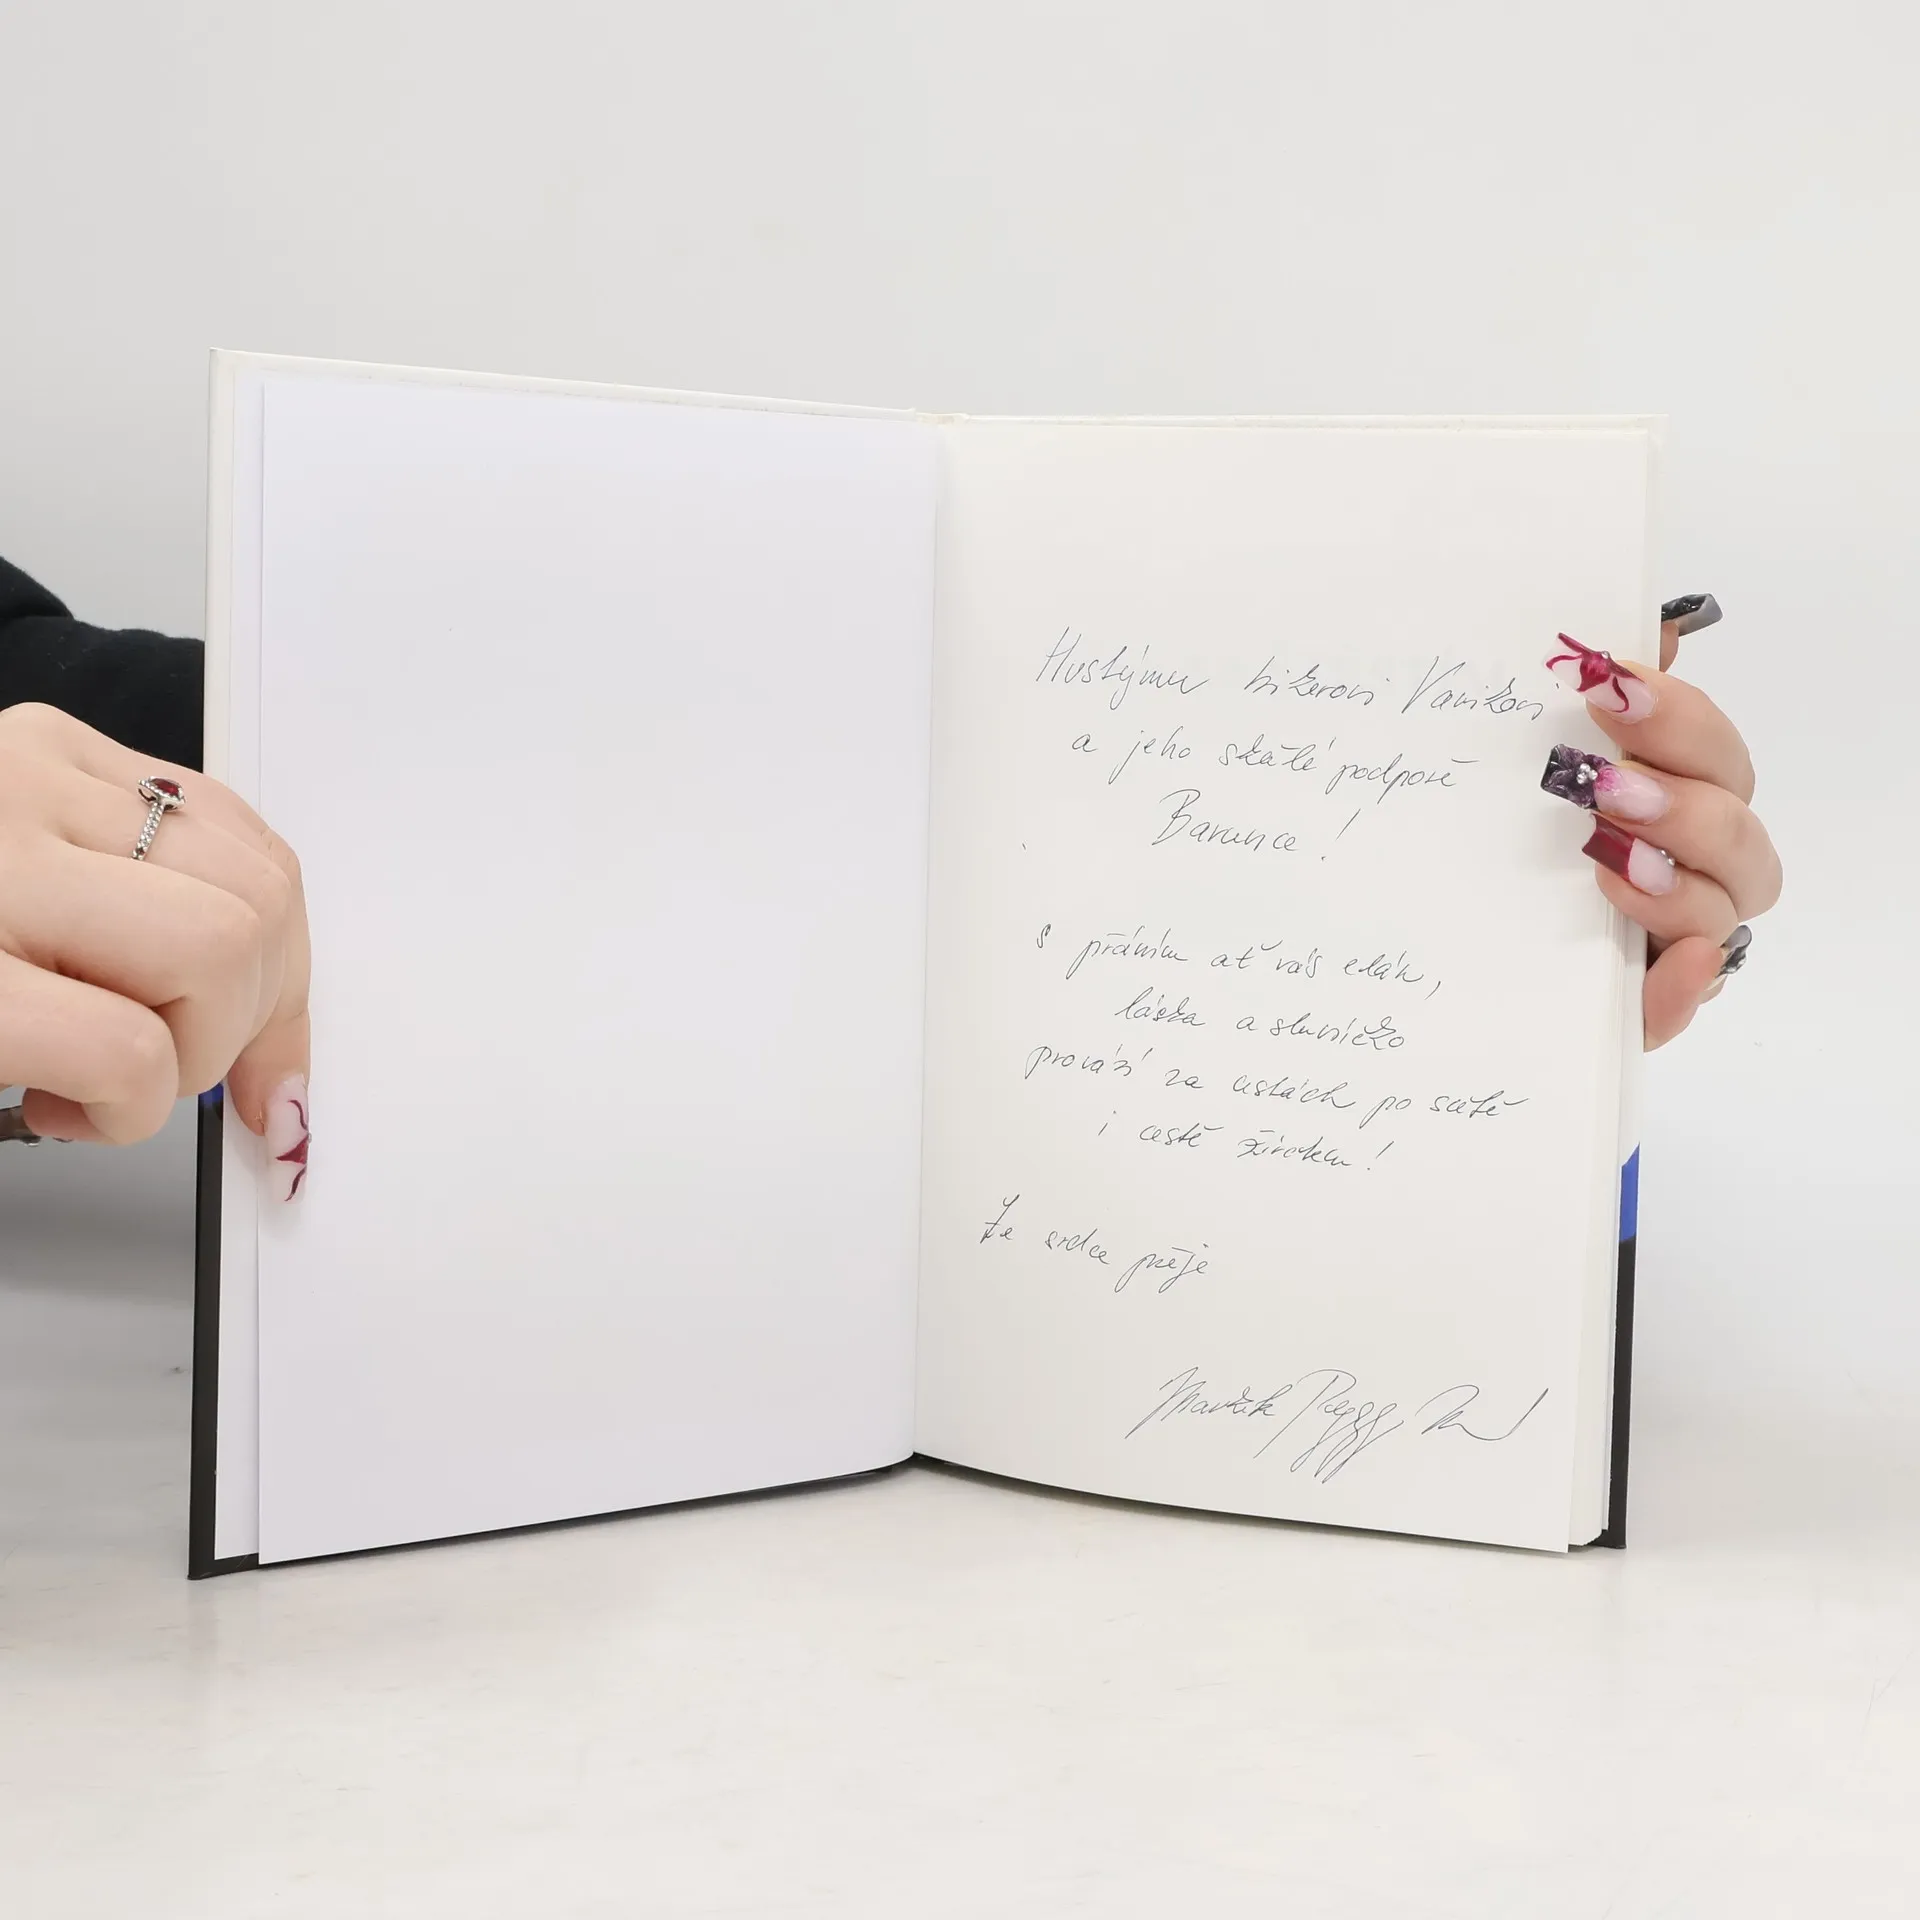 Hustýmu bikerovi Vaníkovi
a jeho skálé podpoře
Barunce!
s přáním ať vás elán,
láska a sluníčko
provází na cestách po světě
i cestě životem!
Ze srdce přeje
Peggy